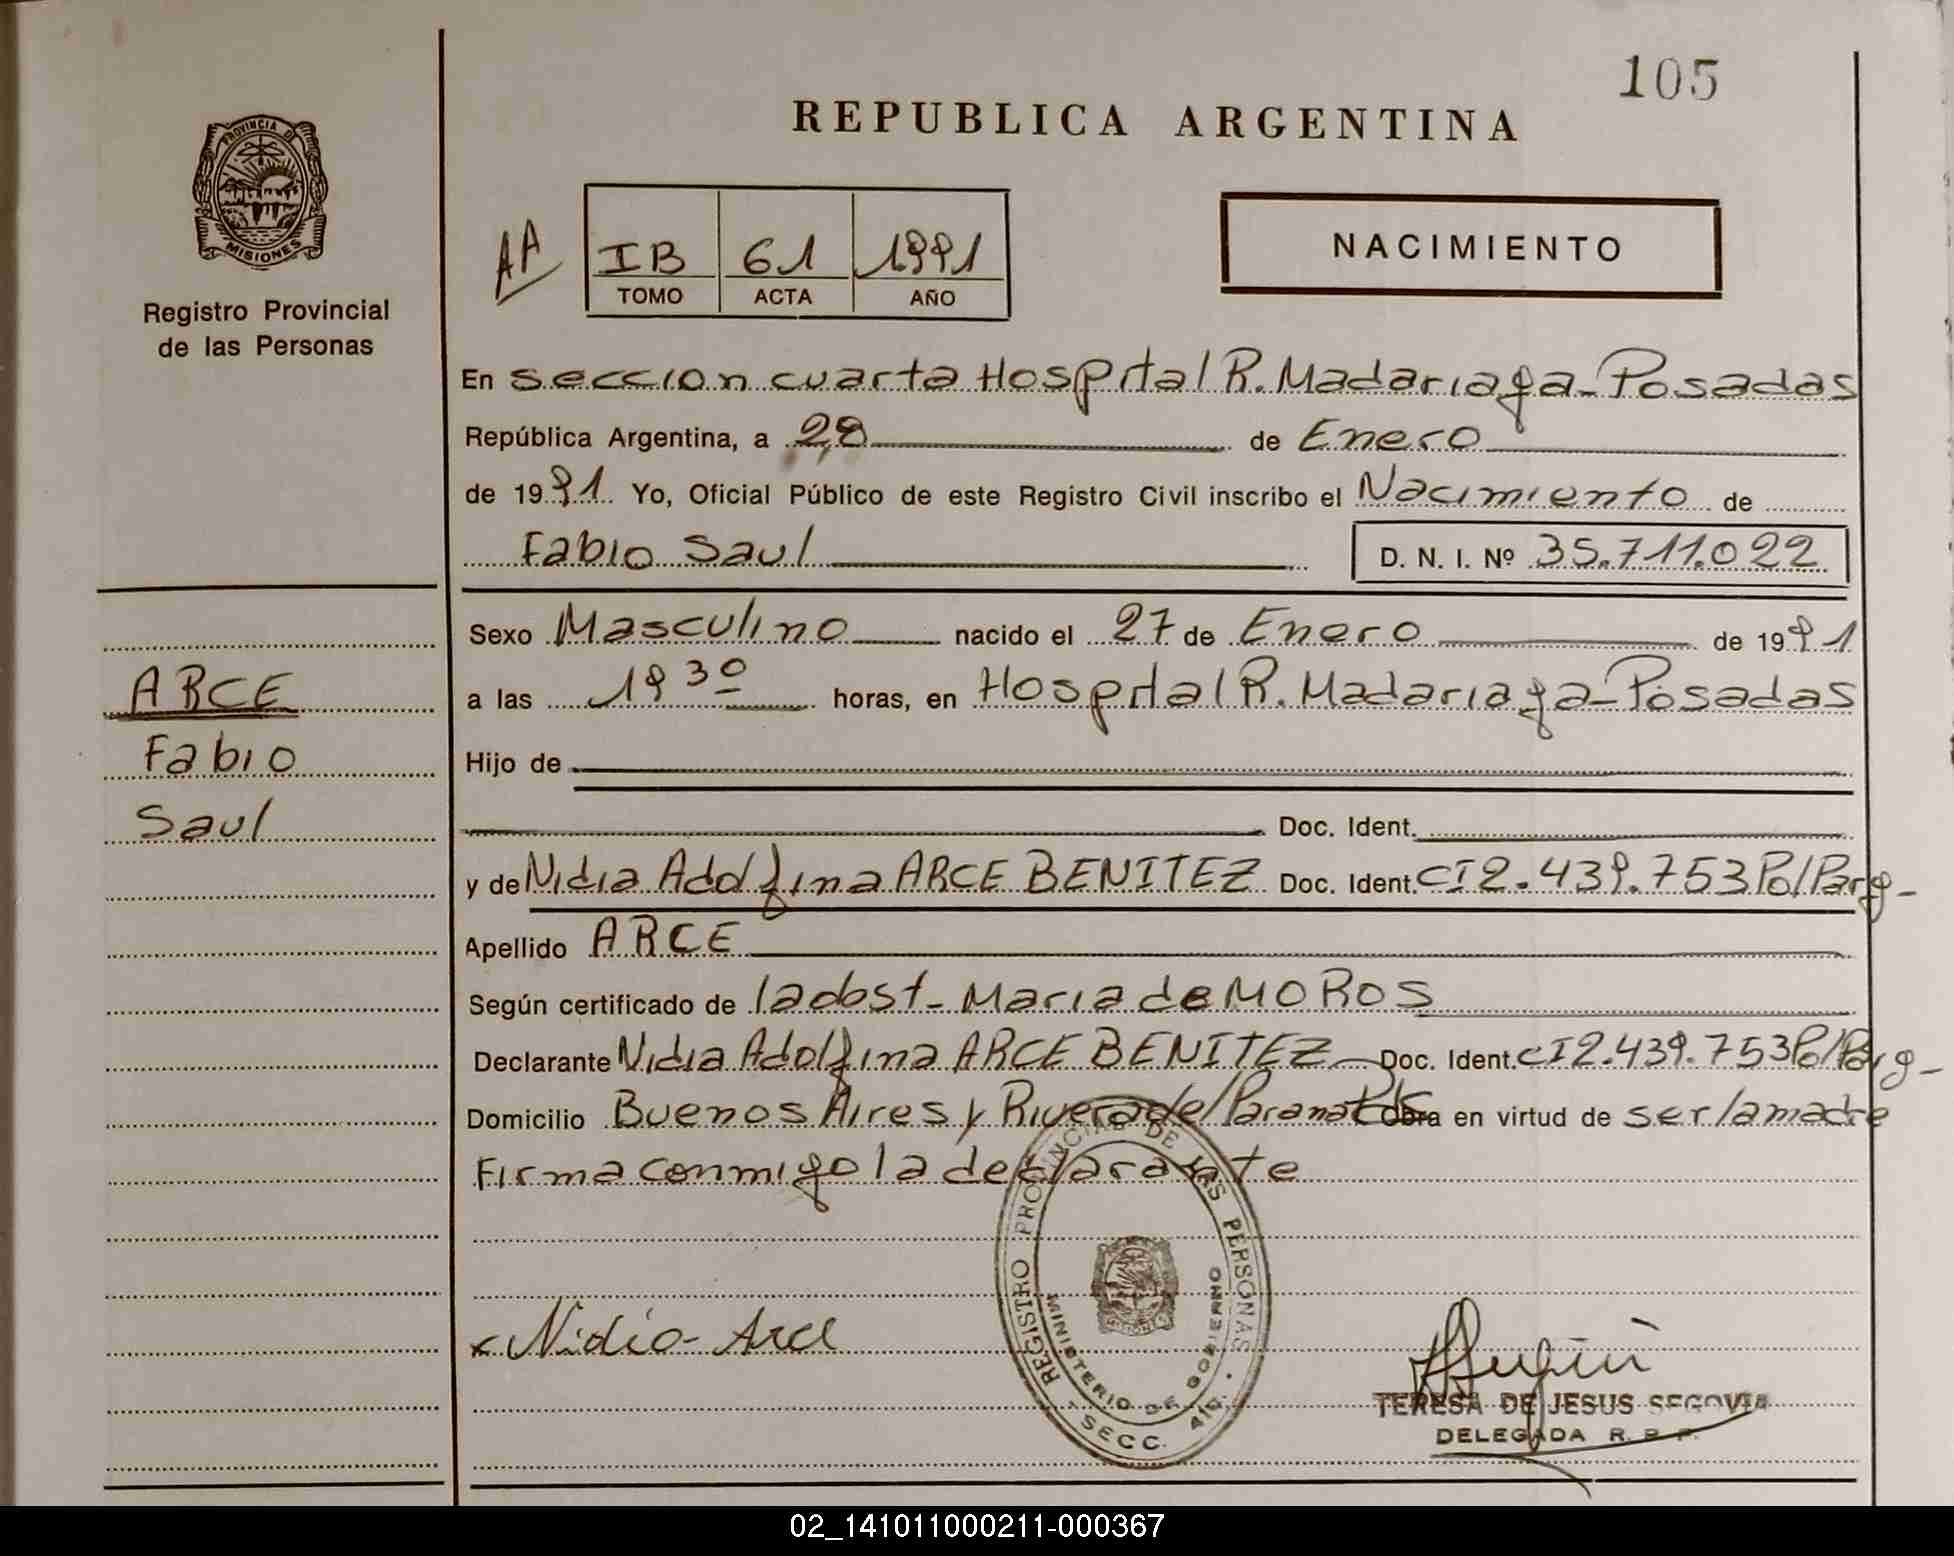 105
REPUBLICA ARGENTINA
PROVINCIA D
MISIONES
Registro Provincial
de las Personas
AA
IB 61 1991
TOMO ACTA AÑO
NACIMIENTO
En seccion cuarta Hospital R. Madariaga-Posadas
República Argentina, a 28 de Enero
de 1991 Yo, Oficial Público de este Registro Civil inscribo el Nacimiento de
Fabio Saul D. N. I. Nº 35.711.022
Sexo Masculino nacido el 27 de Enero de 1991
a las 19 30 horas, en Hospital R. Madariaga-Posadas
Hijo de
Doc. Ident.
y de Nidia Adolfina ARCE BENITEZ Doc. Ident. CI 2.439.753 Pol/Parg-
Apellido ARCE
Según certificado de la obst- Maria de MOROS
Declarante Nidia Adolfina ARCE BENITEZ Doc. Ident. CI 2.439.753 Pol/Parg-
Domicilio Buenos Aires y Rivera del Parana Pdas Obra en virtud de ser la madre
Firma conmigo la declarante
ARCE
Fabio
Saul
Nidia Arce
REGISTRO PROVINCIAL DE LAS PERSONAS
MINISTERIO DE GOBIERNO
SECC. 4ta.
MISIONES
TERESA DE JESUS SEGOVIA
DELEGADA R. P. P.
02_141011000211-000367